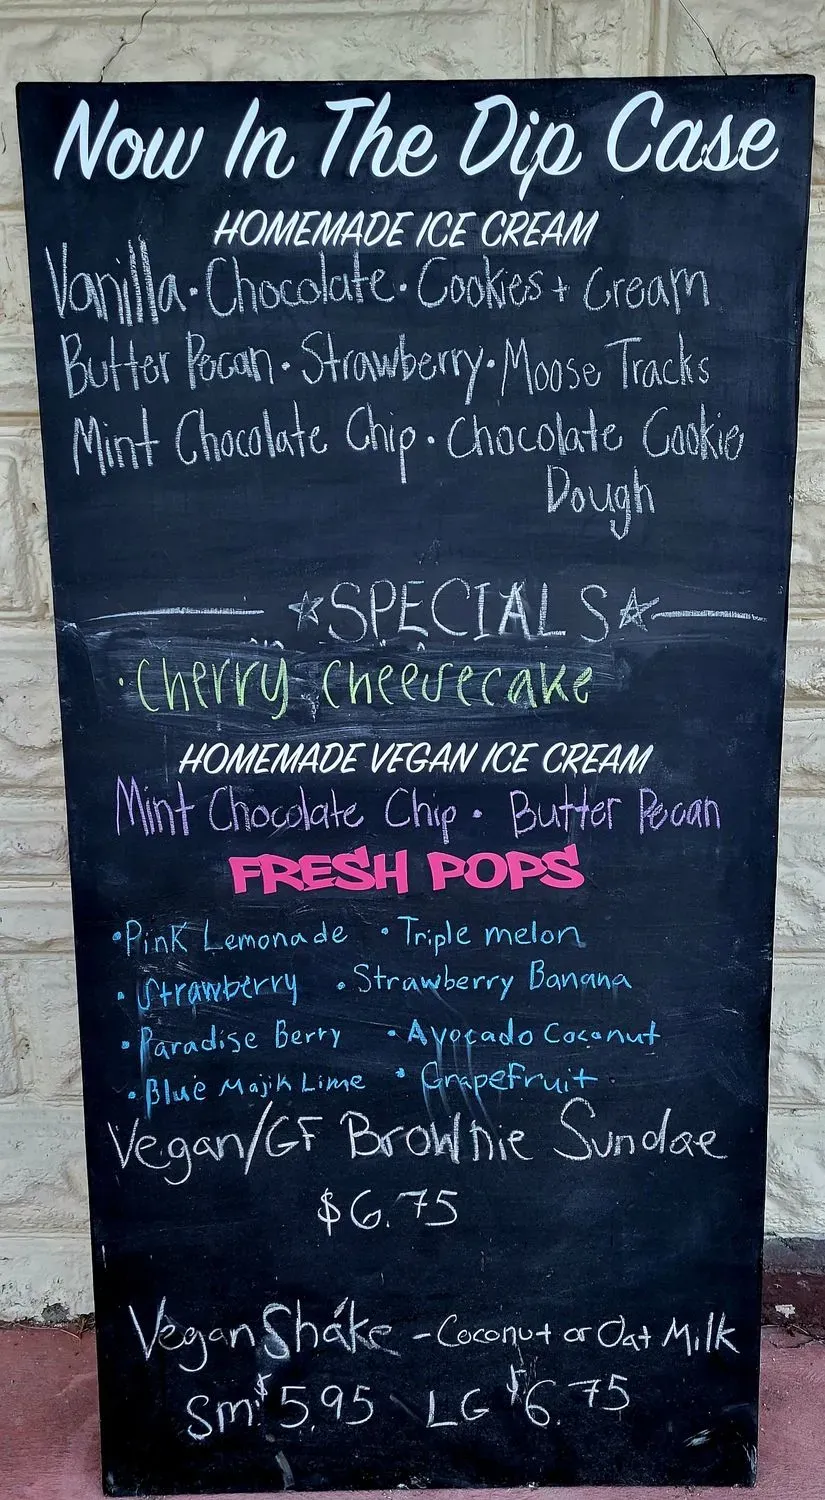 Now In The Dip Case
HOMEMADE ICE CREAM
Vanilla · Chocolate · Cookies + Cream
Butter Pecan · Strawberry · Moose Tracks
Mint Chocolate Chip · Chocolate Cookie
Dough
☆SPECIALS☆
· Cherry Cheesecake
HOMEMADE VEGAN ICE CREAM
Mint Chocolate Chip · Butter Pecan
FRESH POPS
· Pink Lemonade · Triple melon
· Strawberry · Strawberry Banana
· Paradise Berry · Avocado Coconut
· Blue Majik Lime · Grapefruit
Vegan/GF Brownie Sundae
$6.75
Vegan Shake - Coconut or Oat Milk
Sm $5.95 LG $6.75